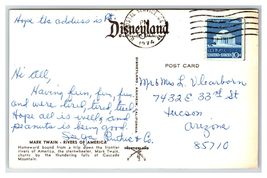 Hope the address is
Disneyland
POST CARD
Hi All,
Having fun, fun, fun
and were tired, tired, tired
Hope all is well, and
peanuts is being good.
& Co.
Mr & Mrs L
7432 E 33rd St
Tucson
Arizona
85710
MARK TWAIN - RIVERS OF AMERICA
Homeward bound from a trip down the frontier
rivers of America, the sternwheeler, Mark Twain,
chants by the thundering falls of Cascade
Mountain.